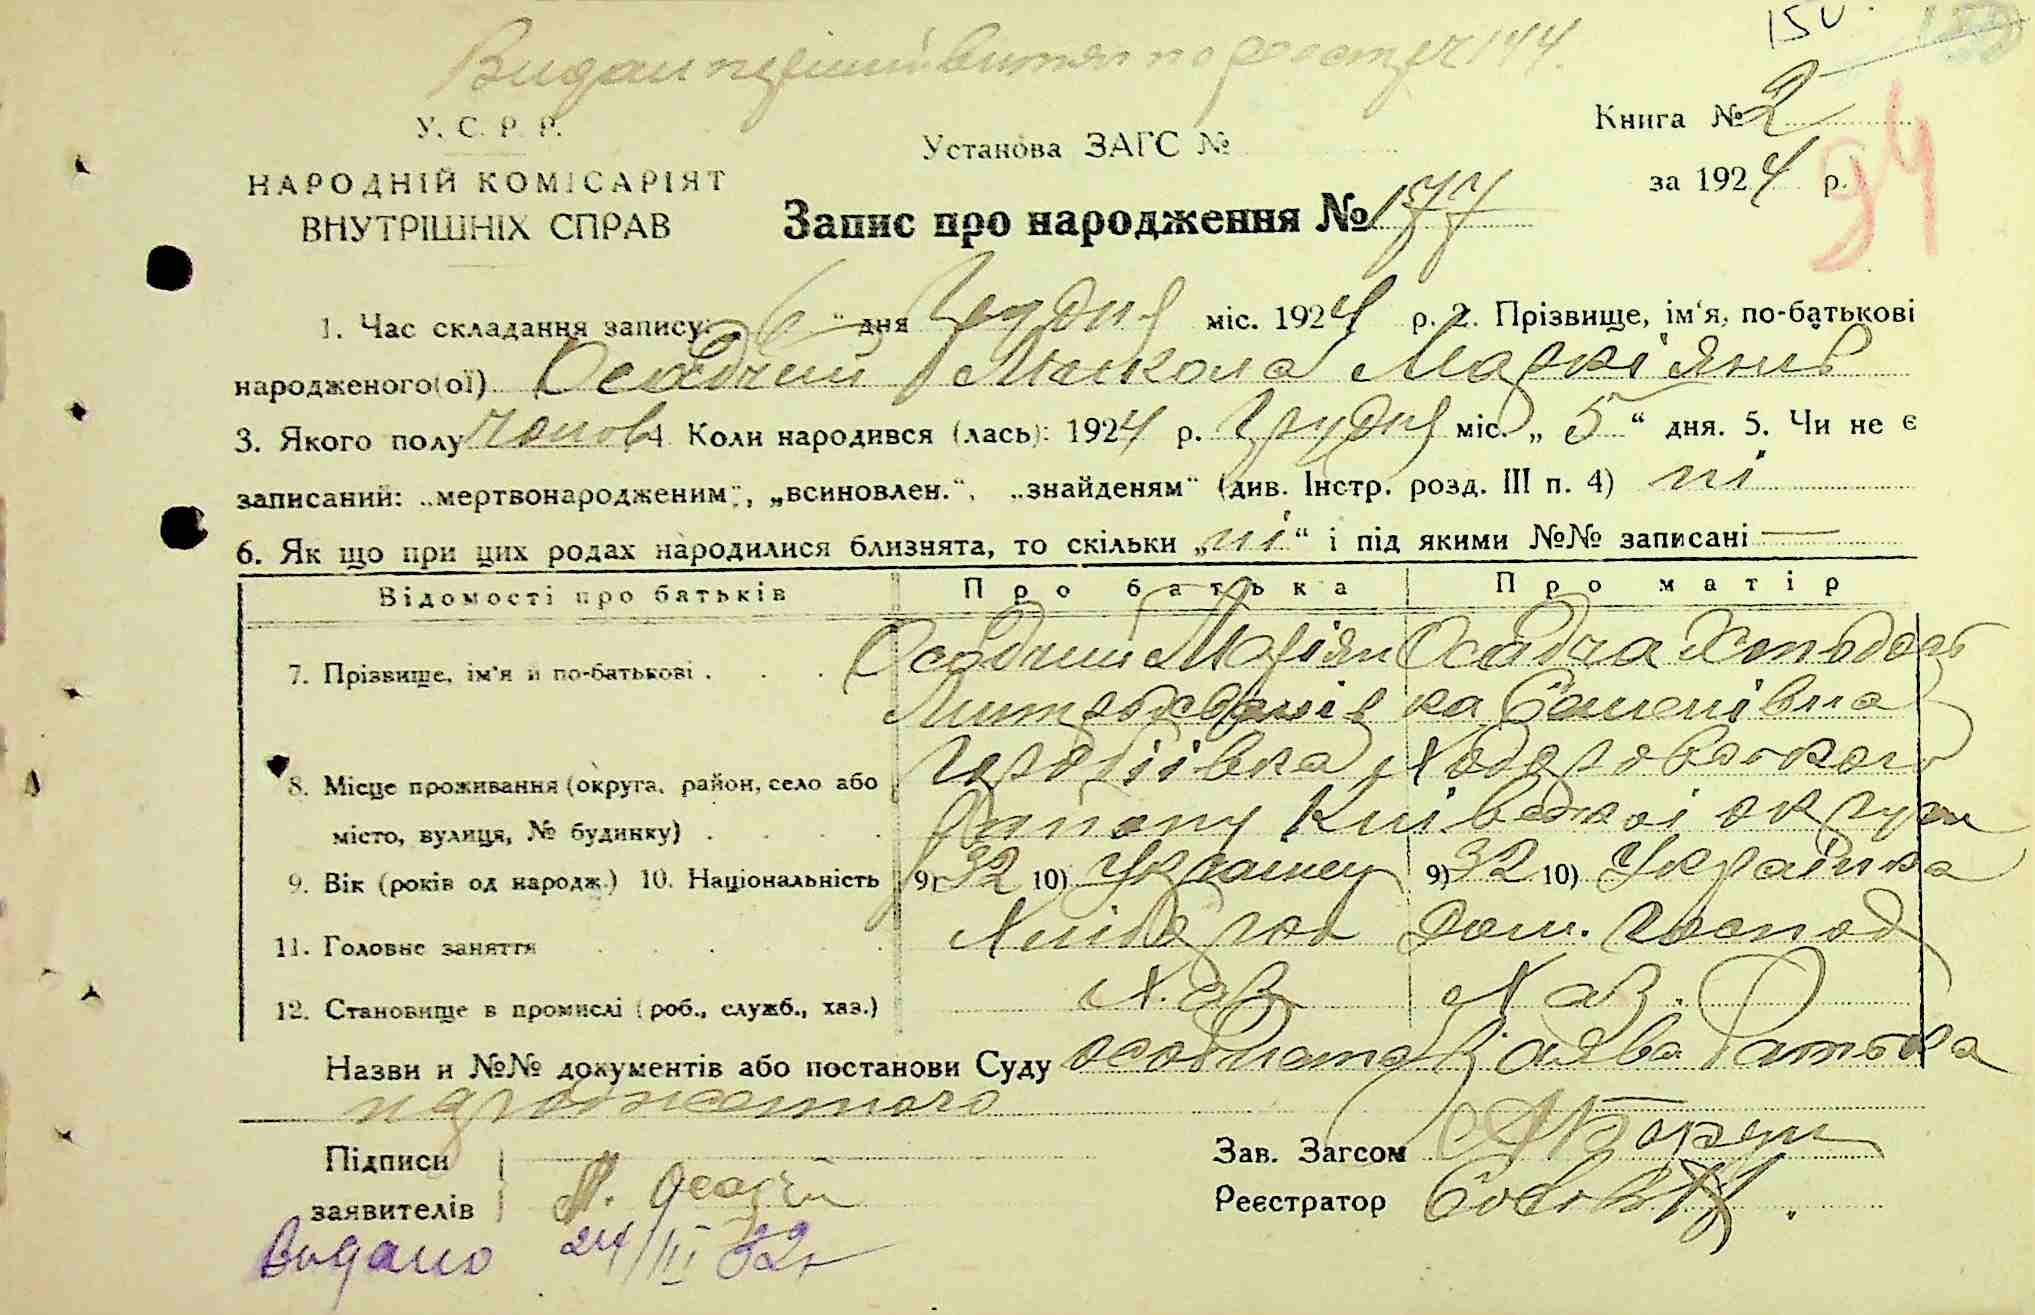 150.
Видан перший витяг по реестру 144.
У. С. Р. Р.
НАРОДНІЙ КОМІСАРІЯТ
ВНУТРІШНІХ СПРАВ
Установа ЗАГС №
Книга № 2
за 1924 р.
94
Запис про народження № 177
1. Час складання запису: „6“ дня Грудня міс. 1924 р. 2. Прізвище, ім'я, по-батькові
народженого(ої) Осадчий Микола Маркіянів
3. Якого полу чолов 4. Коли народився (лась): 1924 р. Грудня міс. „5“ дня. 5. Чи не є
записаний: „мертвонародженим“, „всиновлен.“, „знайденям“ (див. Інстр. розд. III п. 4) ні
6. Як що при цих родах народилися близнята, то скільки „ні“ і під якими №№ записані —
Відомості про батьків Про батька Про матір
7. Прізвище, ім'я й по-батькові . . . Осадчий Осадча
ка Семенівна
8. Місце проживання (округа, район, село або Ходоровського
місто, вулиця, № будинку) . . . . Району Київської округи
9. Вік (років од народж.) 10. Національність 9) 32 10) Українец 9) 32 10) Українка
11. Головне заняття . . . . . Хлібороб Дом. господ
12. Становище в промислі (роб., служб., хаз.) Хаз Хаз.
Назви и №№ документів або постанови Суду особиста заява батька
народженного
Підписи
заявителів М. Осадчій
Зав. Загсом
Реєстратор
Видано 24/III 32 г